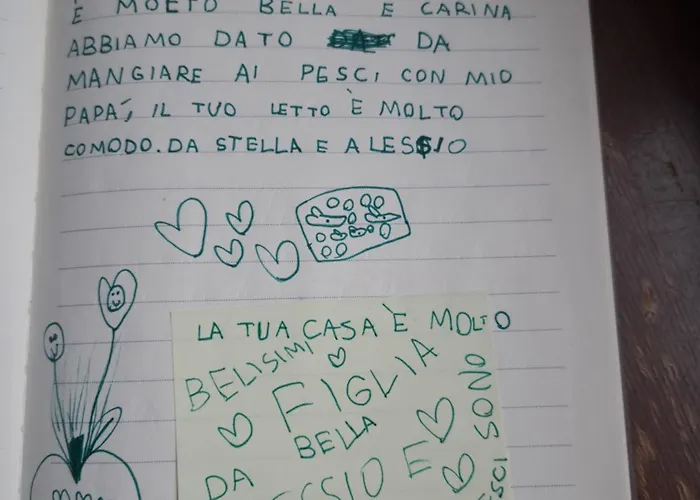 È MOLTO BELLA E CARINA
ABBIAMO DATO DA
MANGIARE AI PESCI CON MIO
PAPÁ, IL TUO LETTO È MOLTO
COMODO. DA STELLA E ALESSIO
LA TUA CASA È MOLTO
BELISIMI
FIGLIA
BELLA
DA
SONO